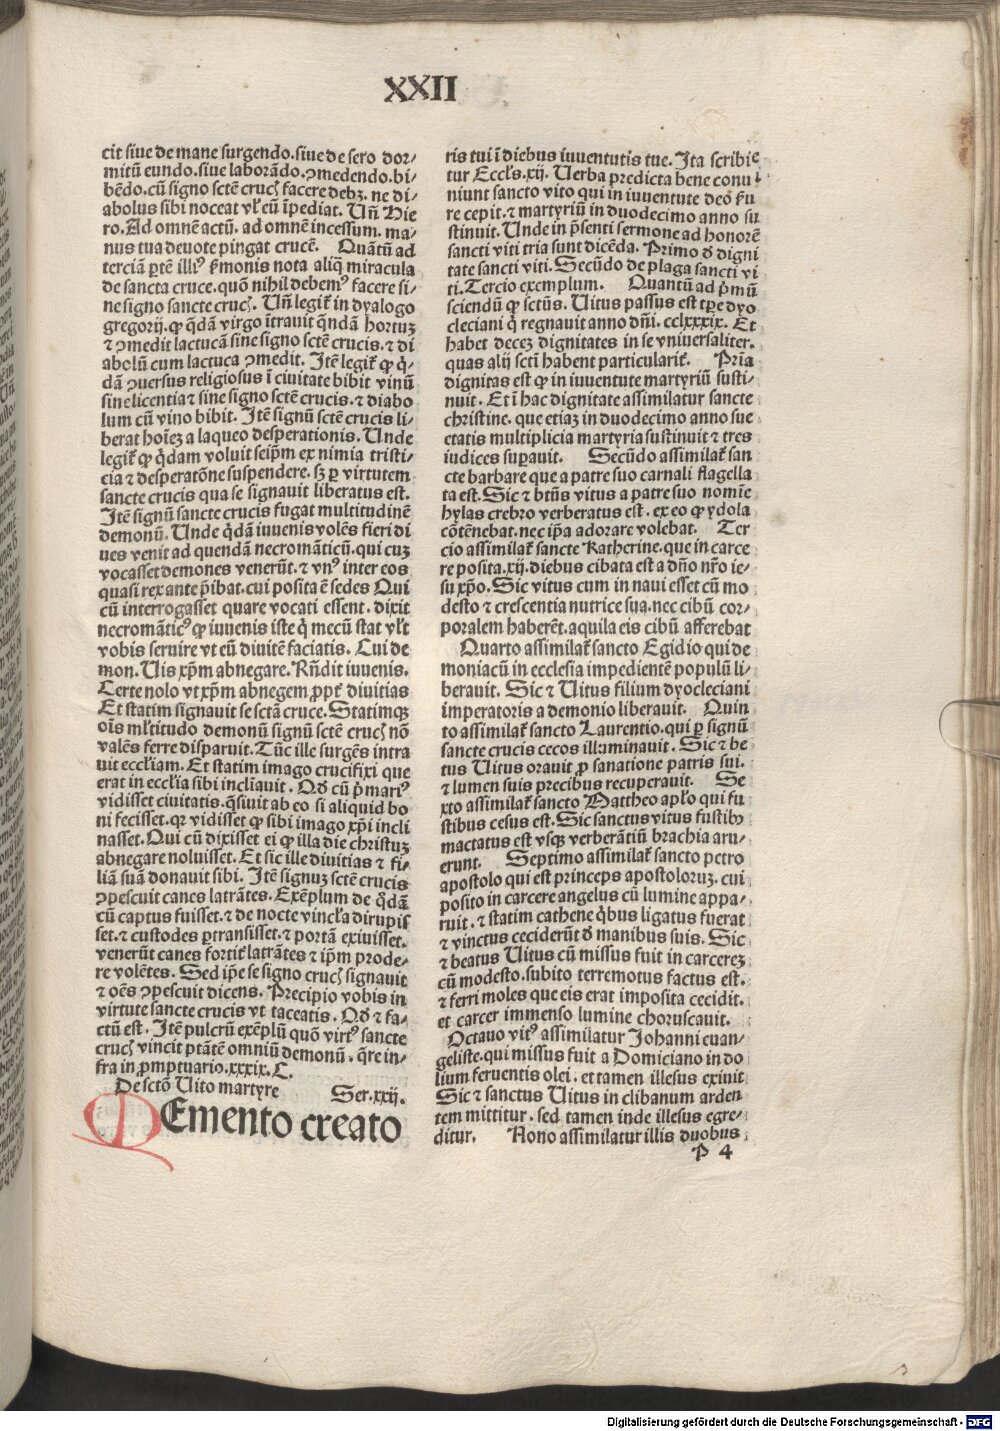 XXII
cit siue de mane surgendo. siue de sero dor-
mitū eundo. siue laborādo. ꝯmedendo. bi-
bēdo. cū signo sctē crucꝭ facere debꝫ. ne di-
abolus sibi noceat vl' eū īpediat. Vn̄ Hie
ro. Ad omnē actū. ad omnē incessum. ma-
nus tua deuote pingat crucē. Quātū ad
terciā ꝑtē illiꝰ s̄monis nota aliq̄ miracula
de sancta cruce. quō nihil debemꝰ facere si-
ne signo sancte crucꝭ. Vn̄ legit̄ in dyalogo
gregorij. ꝙ q̄dā virgo ītrauit q̄ndā hortuꝫ
⁊ ꝯmedit lactucā sine signo sctē crucis. ⁊ di
abolū cum lactuca ꝯmedit. Itē legit̄ ꝙ q̄-
dā ꝯuersus religiosus ī ciuitate bibit vinū
sine licentia ⁊ sine signo sctē crucis. ⁊ diabo
lum cū vino bibit. Itē signū sctē crucis li-
berat hoīeꝫ a laqueo desperationis. Unde
legit̄ ꝙ q̄dam voluit seip̄m ex nimia tristi-
cia ⁊ desperatōne suspendere. sꝫ ꝑ virtutem
sancte crucis qua se signauit liberatus est.
Itē signū sancte crucis fugat multitudinē
demonū. Unde q̄dā iuuenis volēs fieri di
ues venit ad quendā necromāticū. qui cuꝫ
vocasset demones venerūt. ⁊ vnꝰ inter eos
quasi rex ante p̄ibat. cui posita ē sedes Qui
cū interrogasset quare vocati essent. dixit
necromāticꝰ ꝙ iuuenis iste q̄ mecū stat vl't
vobis seruire vt eū diuitē faciatis. Cui de
mon. Vis xp̄m abnegare. Rn̄dit iuuenis.
Certe nolo vt xp̄m abnegem ꝓpt̄ diuitias
Et statim signauit se sctā cruce. Statimqꝫ
oīs ml'titudo demonū signū sctē crucꝭ nō
valēs ferre disparuit. Tūc ille surgēs intra
uit eccl'iam. Et statim imago crucifixi que
erat in eccl'ia sibi incliauit. Qd̄ cū p̄mariꝰ
vidisset ciuitatis. q̄siuit ab eo si aliquid bo
ni fecisset. qꝛ vidisset ꝙ sibi imago xp̄i incli
nasset. Qui cū dixisset ei ꝙ illa die christuꝫ
abnegare noluisset. Et sic ille diuitias ⁊ fi-
liā suā donauit sibi. Itē signuꝫ sctē crucis
ꝯpescuit canes latrātes. Exēplum de q̄dā
cū captus fuisset. ⁊ de nocte vincl'a dirupis
set. ⁊ custodes ꝑtransisset. ⁊ portā exiuisset.
venerūt canes fortit̄ latrātes ⁊ ip̄m prode-
re volētes. Sed ip̄e se signo crucꝭ signauit
⁊ oēs ꝯpescuit dicens. Precipio vobis in
virtute sancte crucis vt taceatis. Qd̄ ⁊ fa-
ctū est. Itē pulcrū exēplū quō virtꝰ sancte
crucꝭ vincit ptātē omniū demonū. q̄re in-
fra in ꝓmptuario. xxxix. C.
De sctō Vito martyre Ser. xxij.
MEmento creato
ris tui ī diebus iuuentutis tue. Ita scribi
tur Eccl's. xij. Verba predicta bene conu
niunt sancto vito qui in iuuentute deo s̄u
re cepit. ⁊ martyriū in duodecimo anno su
stinuit. Unde in p̄senti sermone ad honorē
sancti viti tria sunt dicēda. Primo d̄ digni
tate sancti viti. Secūdo de plaga sancti vi
ti. Tercio exemplum. Quantū ad p̄mū
sciendū ꝙ sctūs. Vitus passus est tꝑe dyo
cleciani q̄ regnauit anno dn̄i. cclxxxix. Et
habet deceꝫ dignitates in se vniuersaliter.
quas alij sctī habent particularit̄. Prīa
dignitas est ꝙ in iuuentute martyriū susti-
nuit. Et ī hac dignitate assimilatur sancte
christine. que etiaꝫ in duodecimo anno sue
etatis multiplicia martyria sustinuit ⁊ tres
iudices suꝑauit. Secūdo assimilat̄ san
cte barbare que a patre suo carnali flagella
ta est. Sic ⁊ btūs vitus a patre suo nomīe
hylas crebro verberatus est. ex eo ꝙ ydola
cōtēnebat. nec ip̄a adorare volebat. Ter
cio assimilat̄ sancte Katherine. que in carce
re posita. xij. diebus cibata est a dn̄o nr̄o ie-
su xp̄o. Sic vitus cum in naui esset cū mo
desto ⁊ crescentia nutrice sua. nec cibū cor-
poralem haberēt. aquila eis cibū afferebat
Quarto assimilat̄ sancto Egidio qui de
moniacū in ecclesia impedientē populū li-
berauit. Sic ⁊ Vitus filium dyocleciani
imperatoris a demonio liberauit. Quin
to assimilat̄ sancto Laurentio. qui ꝑ signū
sancte crucis cecos illuminauit. Sic ⁊ be
tus Vitus orauit ꝓ sanatione patris sui.
⁊ lumen suis precibus recuperauit. Se
xto assimilat̄ sancto Mattheo apl'o qui fu
stibus cesus est. Sic sanctus vitus fustibꝫ
mactatus est vsqꝫ verberātiū brachia aru-
erunt. Septimo assimilat̄ sancto petro
apostolo qui est princeps apostoloruꝫ. cui
posito in carcere angelus cū lumine appa-
ruit. ⁊ statim cathene q̄bus ligatus fuerat
⁊ vinctus ceciderūt d̄ manibus suis. Sic
⁊ beatus Vitus cū missus fuit in carcereꝫ
cū modesto. subito terremotus factus est.
⁊ ferri moles que eis erat imposita cecidit.
et carcer immenso lumine choruscauit.
Octauo vitꝰ assimilatur Johanni euan-
geliste. qui missus fuit a Domiciano in do
lium feruentis olei. et tamen illesus exiuit
Sic ⁊ sanctus Vitus in clibanum arden
tem mittitur. sed tamen inde illesus egre-
ditur. Nono assimilatur illis duobus
P 4
Digitalisierung gefördert durch die Deutsche Forschungsgemeinschaft - DFG